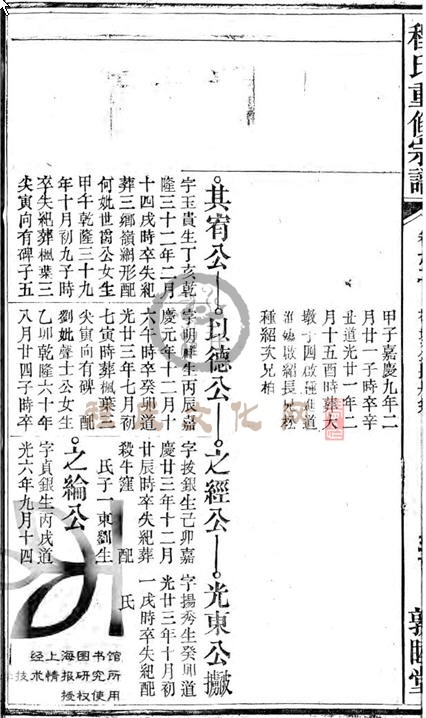 程氏重修宗譜
敦睦堂
甲子嘉慶九年二
月廿一子時卒辛
丑道光廿一年二
月十五酉時葬大
種紹次兄柏
其宥公
字玉貴生丁亥乾
隆三十二年二月
十四戌時卒失紀
葬三鄉嶺網形配
何妣世喬公女生
甲午乾隆三十九
年十月初九子時
卒失紀葬楓葉三
尖寅向有碑子五
以德公
字明峰生丙辰嘉
慶元年十二月十
六午時卒癸卯道
光廿三年七月初
七寅時葬楓葉三
尖寅向有碑 配
劉妣聲士公女生
乙卯乾隆六十年
八月廿四子時卒
之經公
字拔銀生己卯嘉
慶廿三年十二月
廿辰時卒失紀葬
殺牛窪 配
氏子一東劉生
之綸公
字貞銀生丙戌道
光六年九月十四
光東公
字揚秀生癸卯道
光廿三年十月初
一戌時卒失紀配
氏
经上海图书馆
技术情报研究所
授权使用